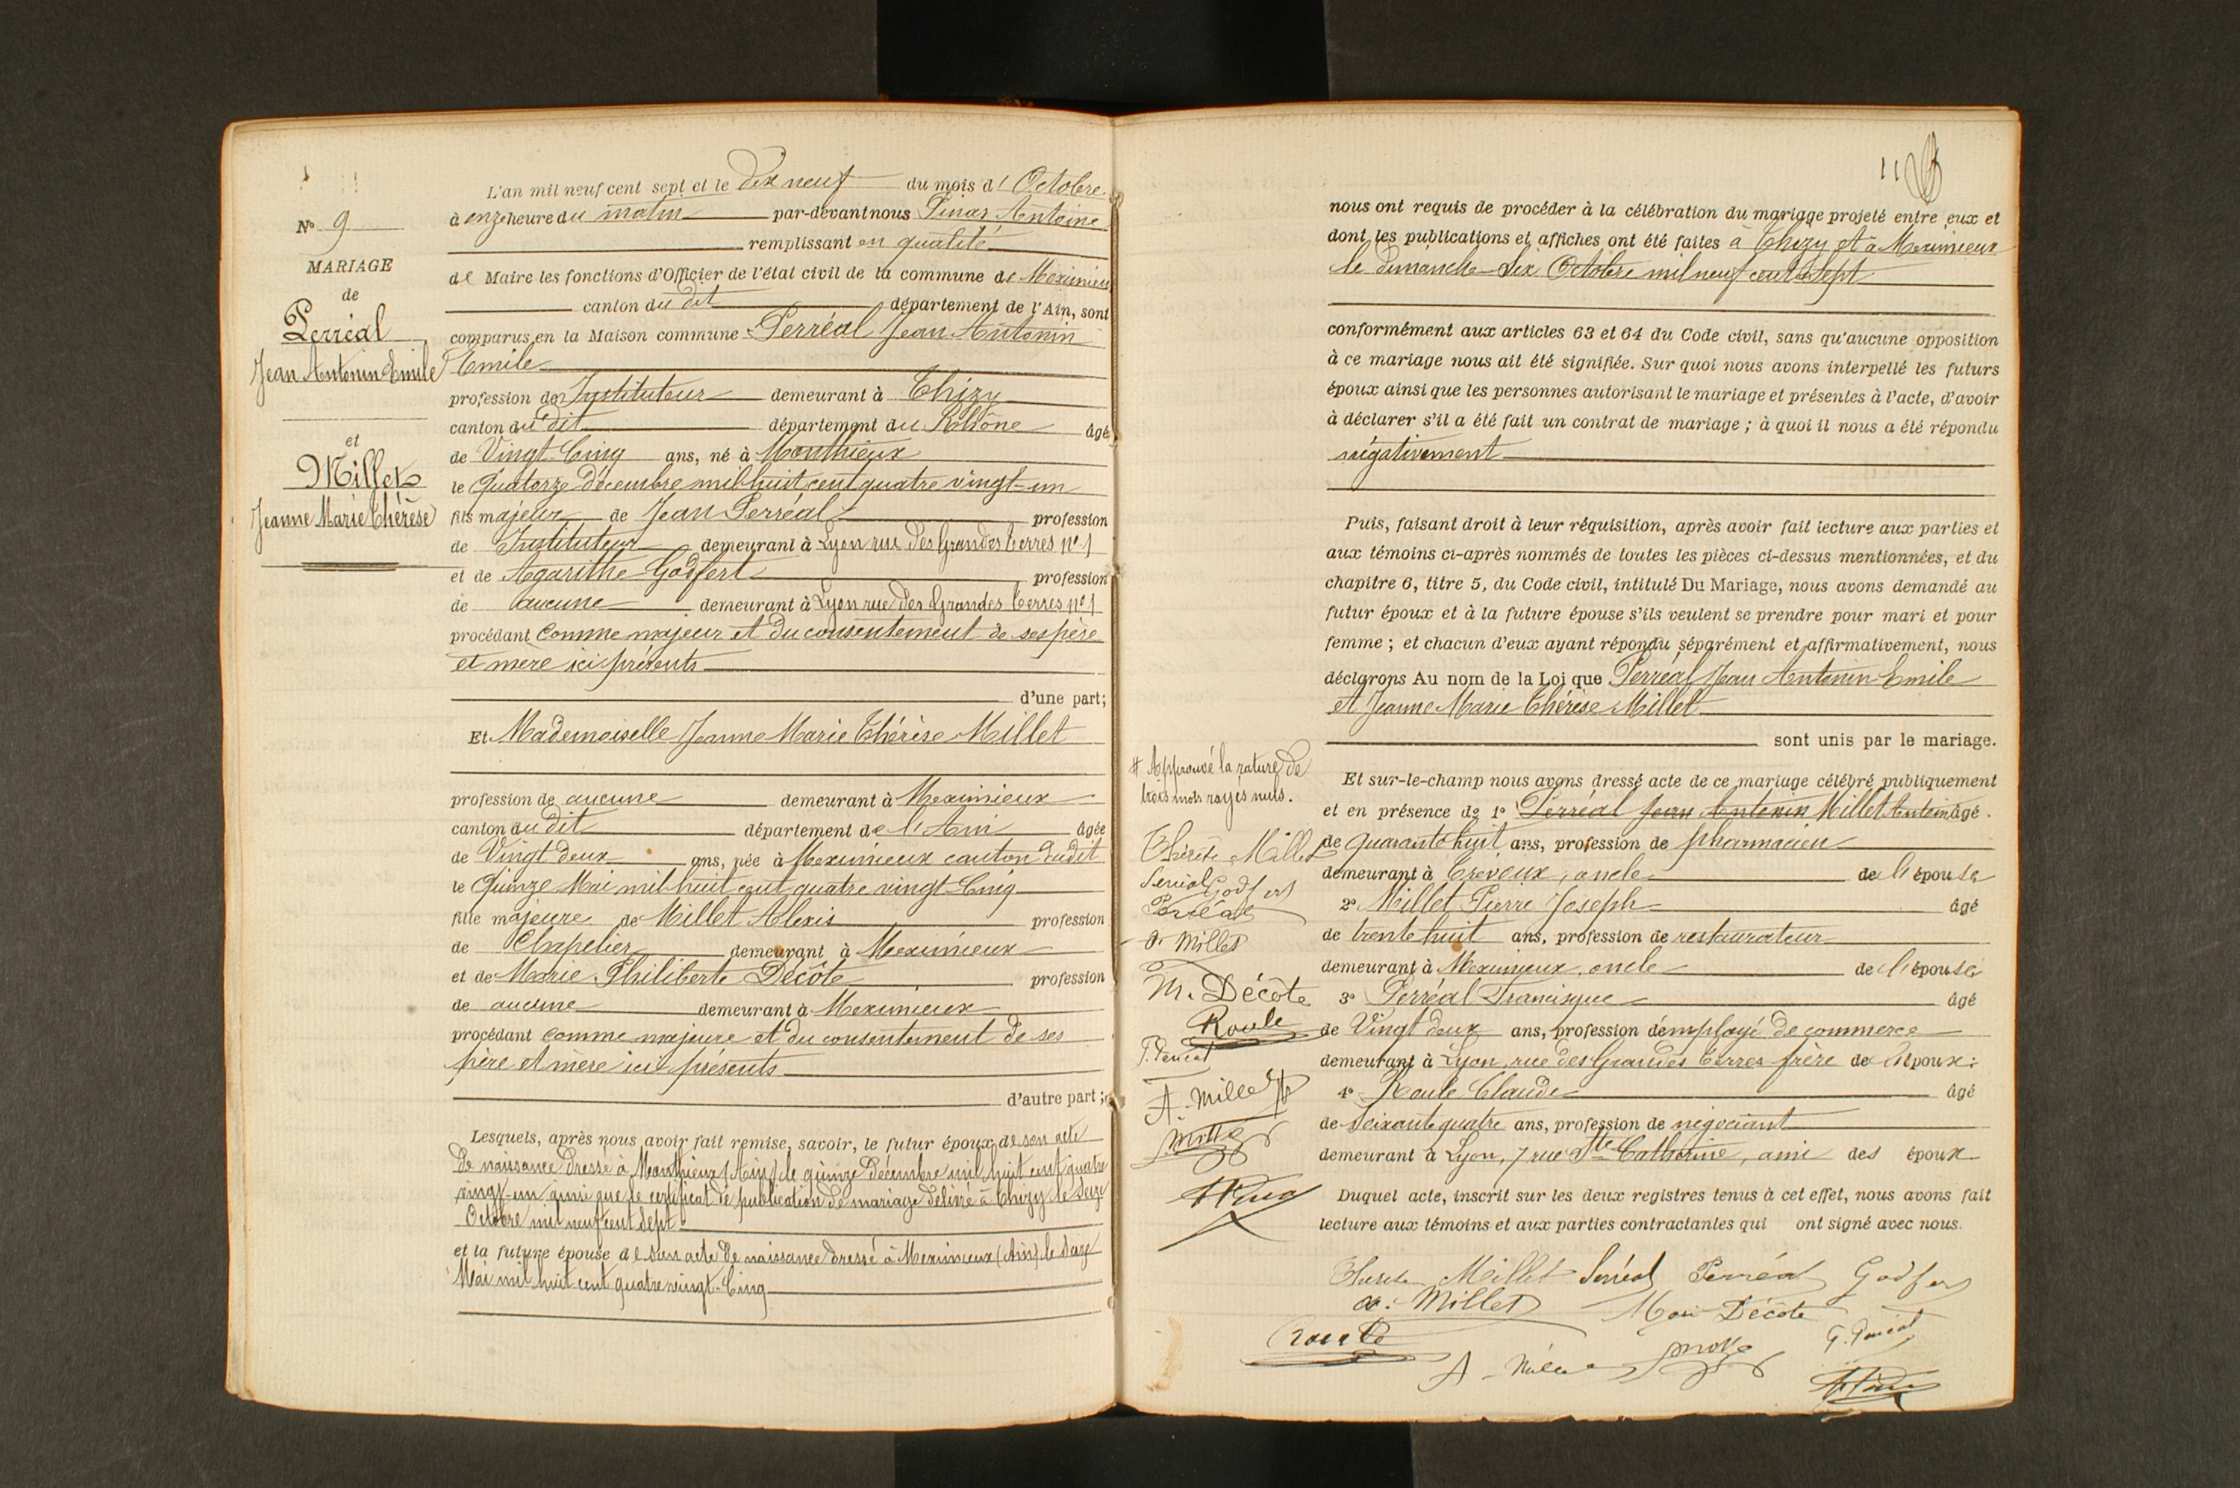 Nº 9
MARIAGE
de
Perréal
Jean Antonin Emile
et
Millet
Jeanne Marie Thérèse
L'an mil neuf cent sept et le dix neuf du mois d' Octobre
à onze heure du matin par-devant nous Pinas Antoine
remplissant en qualité
de Maire les fonctions d'Officier de l'état civil de la commune de Meximieux
canton du dit département de l'Ain, sont
comparus en la Maison commune Perréal Jean Antonin
Emile
profession de Instituteur demeurant à Thizy
canton du dit département du Rhône âgé
de Vingt Cinq ans, né à Monthieux
le Quatorze décembre mil huit cent quatre vingt-un
fils majeur de Jean Perréal profession
de Instituteur demeurant à Lyon rue des Grandes Terres nº 1
et de Agarithe Godfert profession
de aucune demeurant à Lyon rue des Grandes Terres nº 1
procédant comme majeur et du consentement de ses père
et mère ici présents
d'une part;
Et Mademoiselle Jeanne Marie Thérèse Millet
profession de aucune demeurant à Meximieux
canton au dit département de l'Ain âgée
de Vingt deux ans, née à Meximieux canton dudit
le Quinze Mai mil huit cent quatre vingt Cinq
fille majeure de Millet Alexis profession
de Chapelier demeurant à Meximieux
et de Marie Philiberte Decôte profession
de aucune demeurant à Meximieux
procédant comme majeure et du consentement de ses
père et mère ici présents
d'autre part;
Lesquels, après nous avoir fait remise, savoir, le futur époux de son acte
de naissance dressé à Monthieux (Ain) le quinze Décembre mil huit cent quatre
vingt-un ainsi que le certificat de publication de mariage délivré à Thizy le seize
Octobre mil neuf cent sept
et la future épouse de son acte de naissance dressé à Meximieux (Ain) le seize
Mai mil huit cent quatre vingt-Cinq
11
nous ont requis de procéder à la célébration du mariage projeté entre eux et
dont les publications et affiches ont été faites à Thizy et à Meximieux
le dimanche six Octobre mil neuf cent sept
conformément aux articles 63 et 64 du Code civil, sans qu'aucune opposition
à ce mariage nous ait été signifiée. Sur quoi nous avons interpellé les futurs
époux ainsi que les personnes autorisant le mariage et présentes à l'acte, d'avoir
à déclarer s'il a été fait un contrat de mariage; à quoi il nous a été répondu
négativement
Puis, faisant droit à leur réquisition, après avoir fait lecture aux parties et
aux témoins ci-après nommés de toutes les pièces ci-dessus mentionnées, et du
chapitre 6, titre 5, du Code civil, intitulé Du Mariage, nous avons demandé au
futur époux et à la future épouse s'ils veulent se prendre pour mari et pour
femme; et chacun d'eux ayant répondu séparément et affirmativement, nous
déclarons Au nom de la Loi que Perréal Jean Antonin Emile
et Jeanne Marie Thérèse Millet
sont unis par le mariage.
Et sur-le-champ nous avons dressé acte de ce mariage célébré publiquement
et en présence de 1º Perréal Jean Antonin Millet Antoine âgé
de quarante huit ans, profession de pharmacien
demeurant à Trévoux, oncle de l'épouse
2º Millet Pierre Joseph âgé
de trente huit ans, profession de restaurateur
demeurant à Meximieux, oncle de l'épouse
3º Perréal Francisque âgé
de Vingt deux ans, profession d'employé de commerce
demeurant à Lyon, rue des Grandes Terres frère de l'époux.
4º Roule Claude âgé
de soixante quatre ans, profession de négociant
demeurant à Lyon, 7 rue Ste Catherine, ami des époux
Duquel acte, inscrit sur les deux registres tenus à cet effet, nous avons fait
lecture aux témoins et aux parties contractantes qui ont signé avec nous.
Thérèse Millet Perréal Perréal Godfert
a. Millet Marie Décote
Roule F. Perréal
A. Millet
# Approuvé la rature de
trois mots rayés nuls.
Thérèse Millet
Perréal Godfert
Perréal
a. Millet
M. Décôte
Roule
F. Perréal
A. Millet
Millet